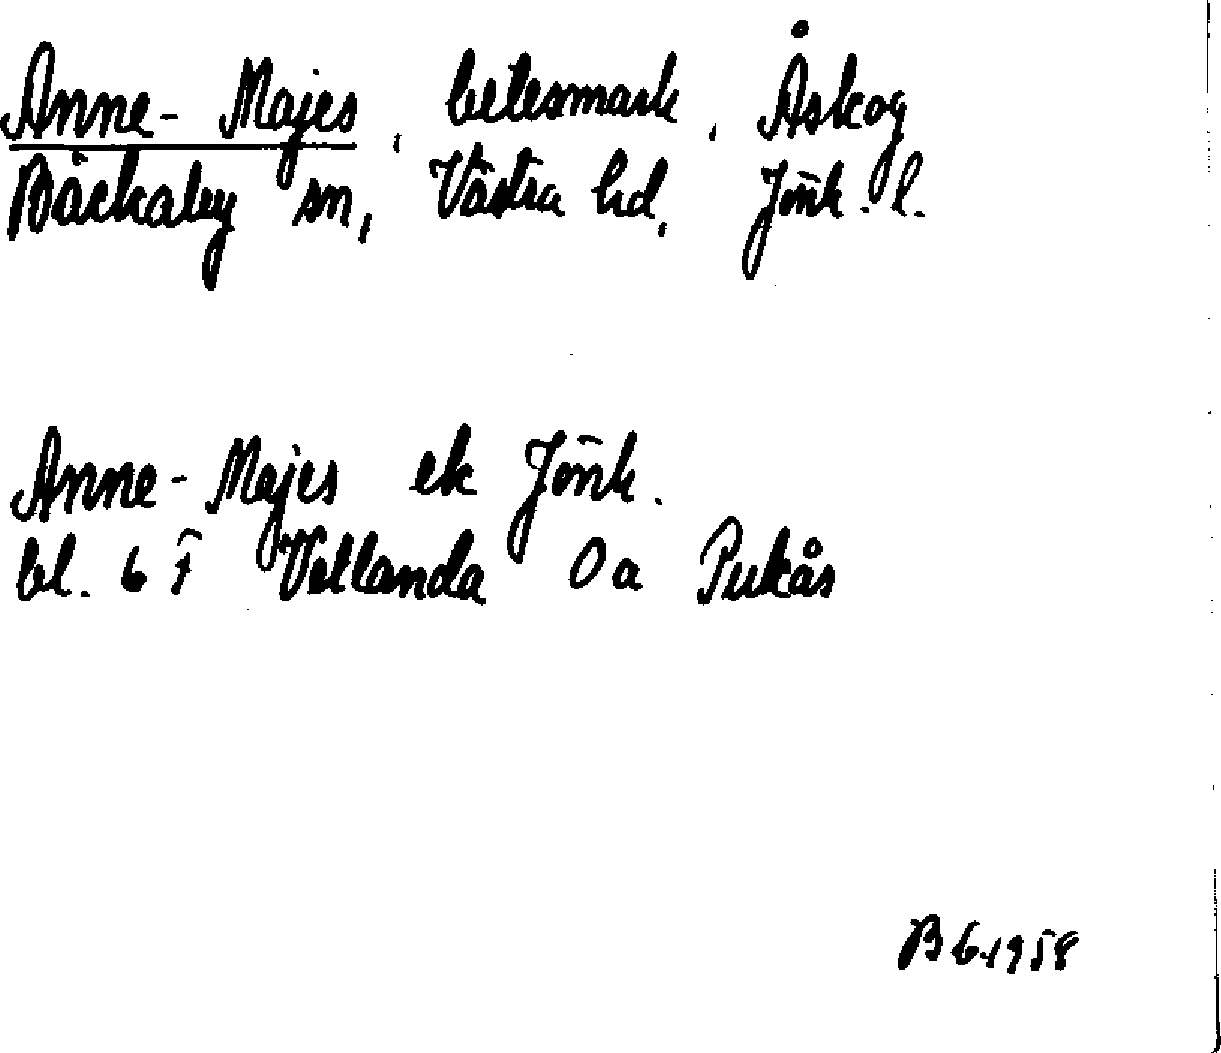 Anne-Majes, betesmark, Åskog
Bäckaby sn, Västra hd, Jönk. l.
Anne-Majes ek Jönk.
bl. 6 F Vetlanda Oa Pukås
BG 1958